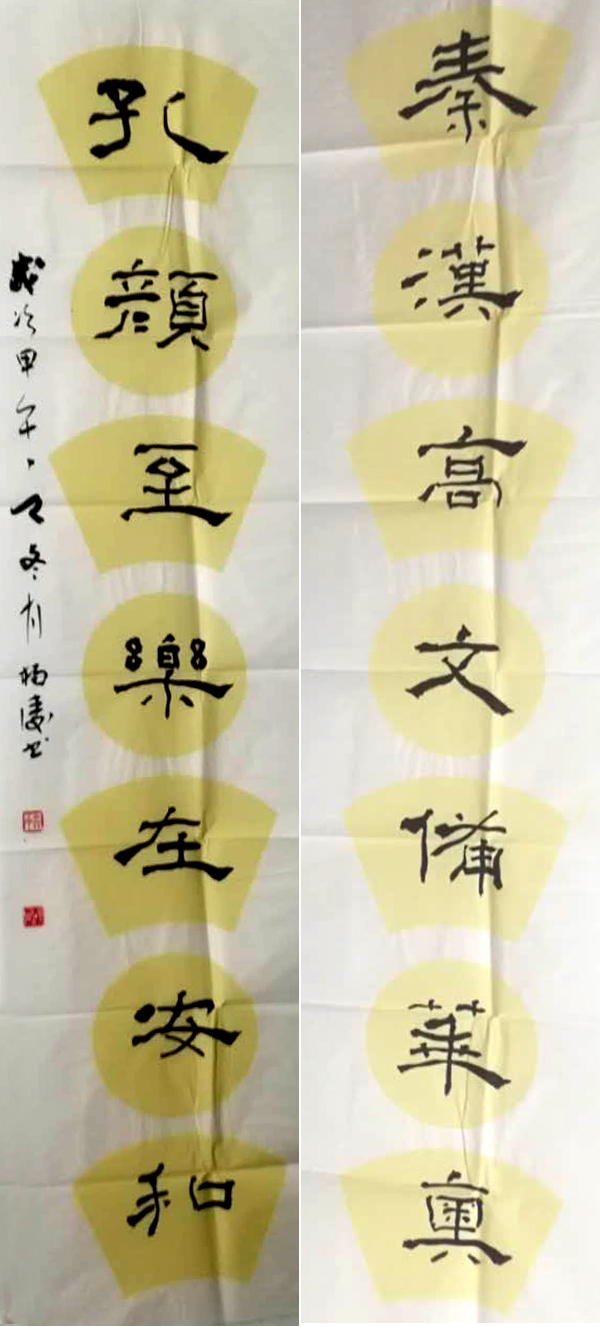 秦漢高文備華奧
孔顏至樂在安和
歲次甲午之冬月